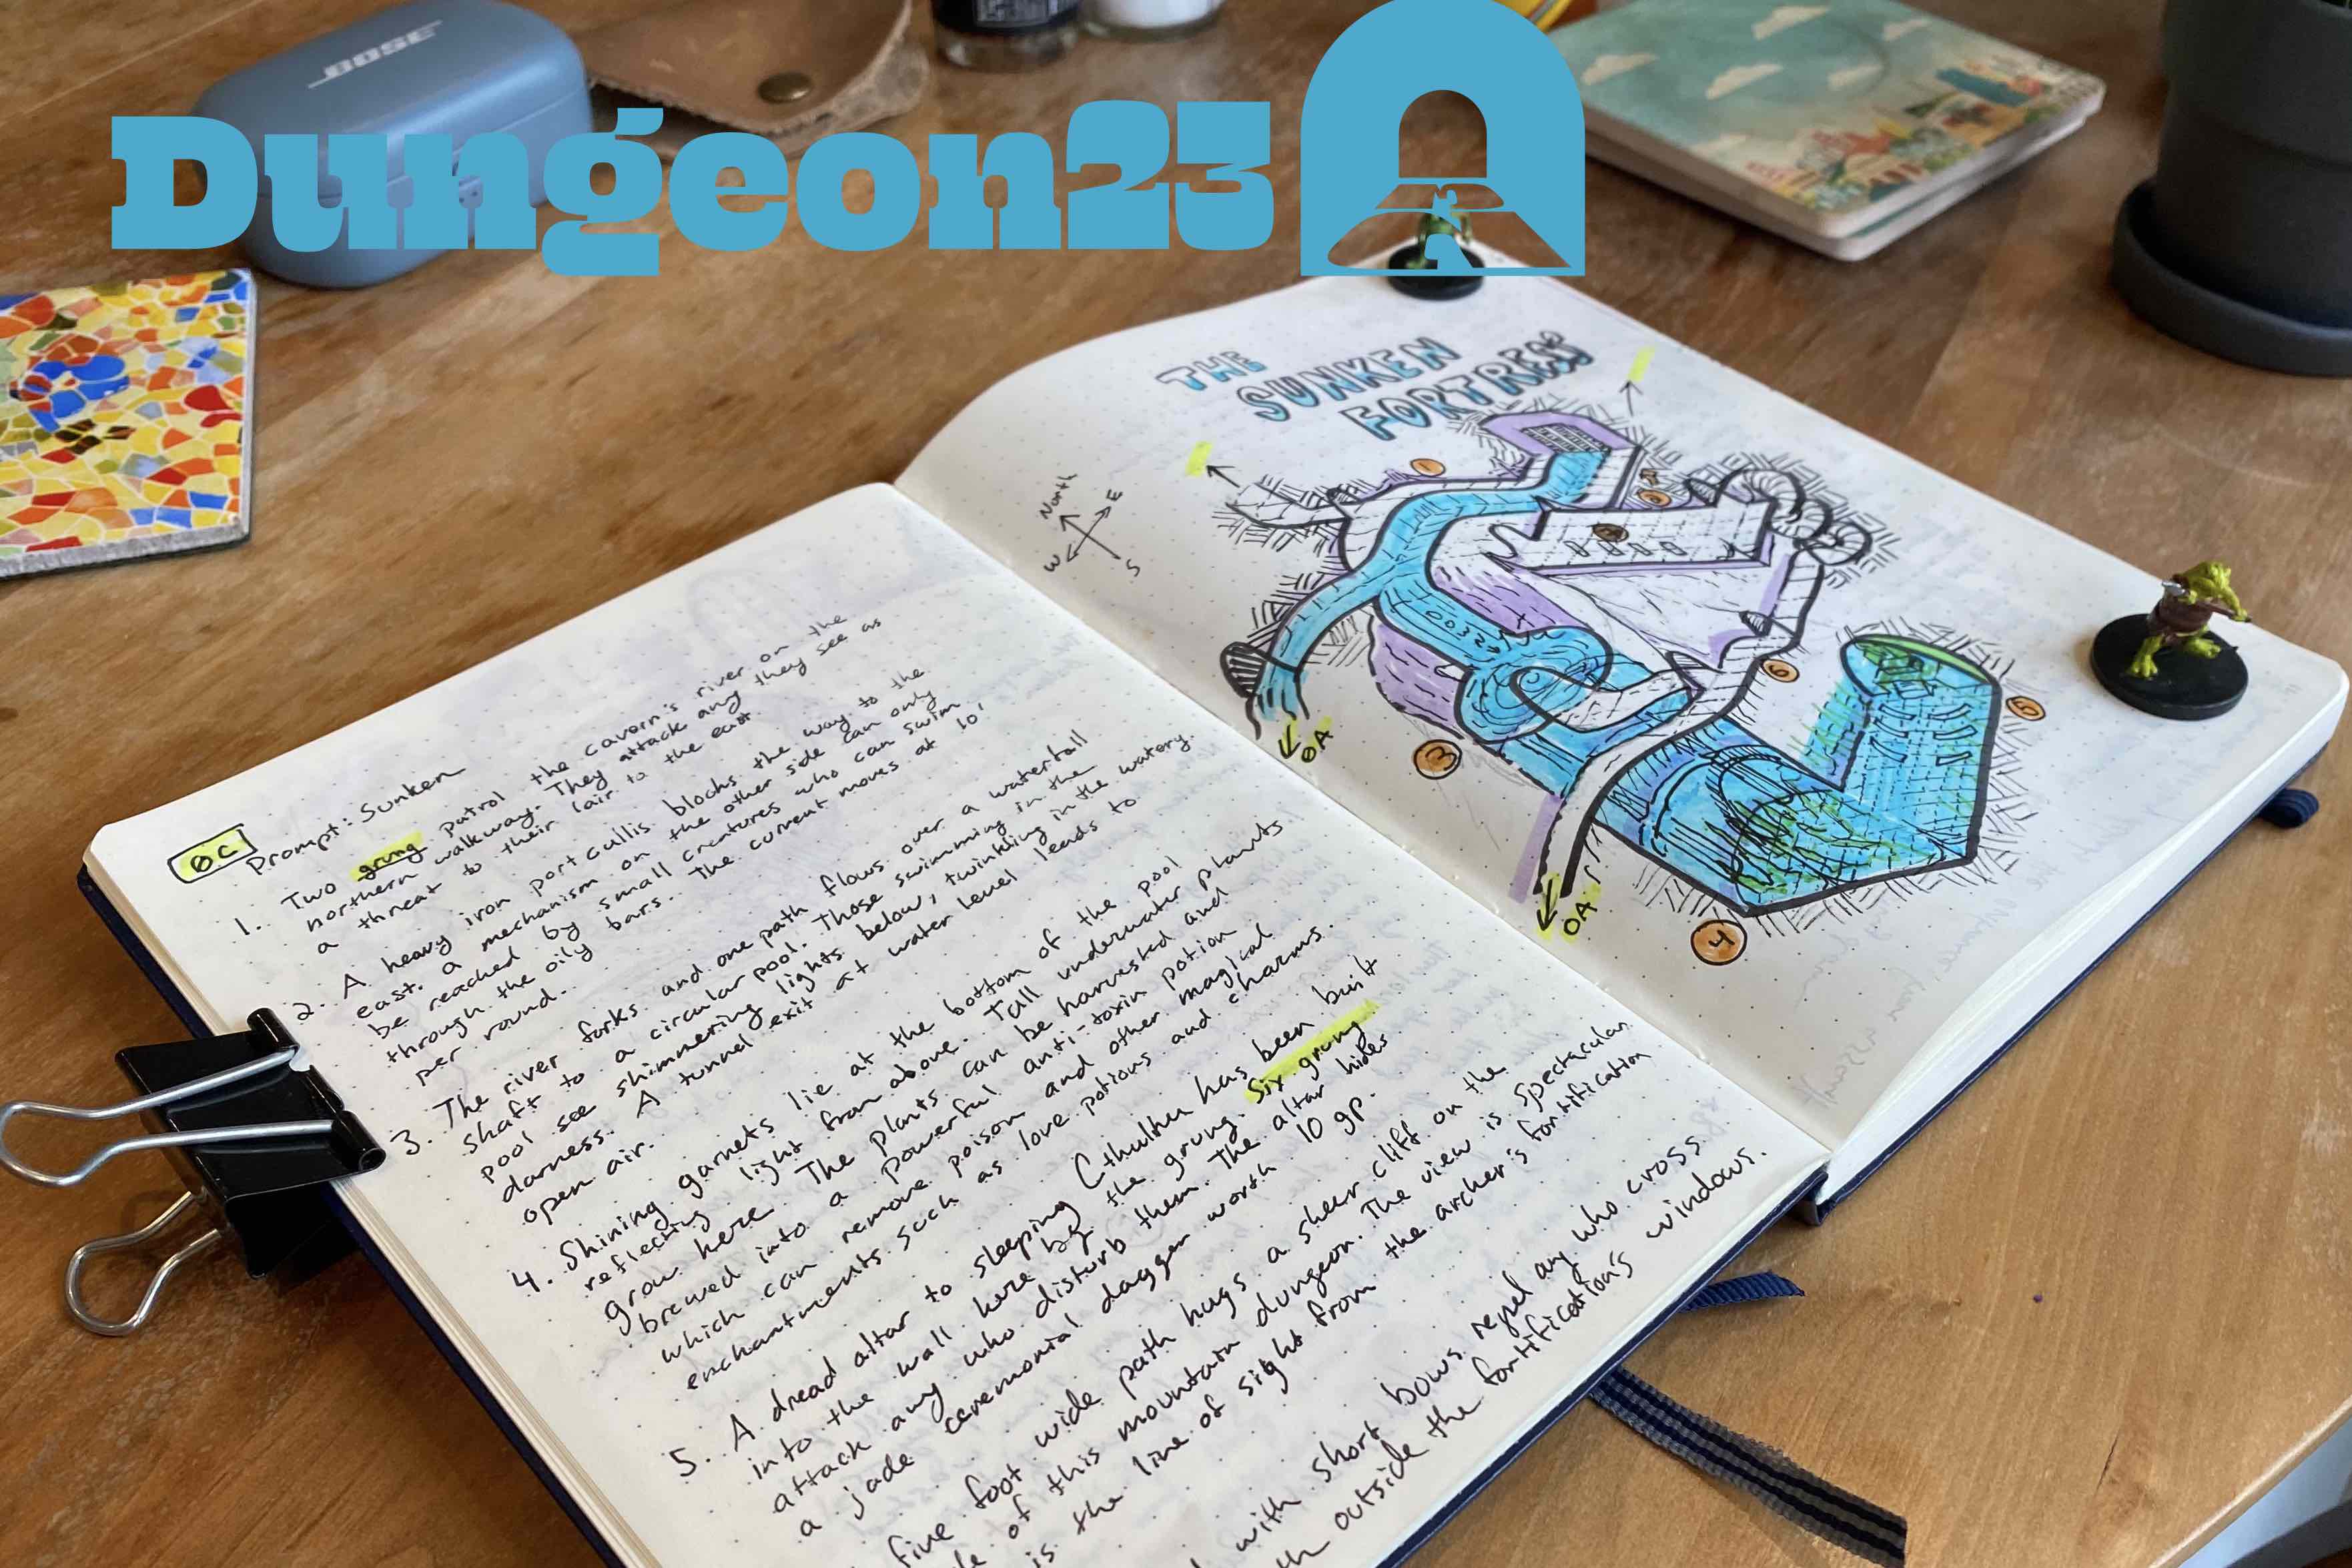 BOSE
Dungeon23
0C
Prompt: Sunken
1. Two grung patrol the cavern's river on the
northern walkway. They attack any they see as
a threat to their lair to the east.
2. A heavy iron portcullis blocks the way to the
east. a mechanism on the other side can only
be reached by small creatures who can swim
through the oily bars. The current moves at 10'
per round.
3. The river forks and one path flows over a waterfall
shaft to a circular pool. Those swimming in the
pool see shimmering lights below, twinkling in the watery
darness. A tunnel exit at water level leads to
open air.
4. Shining garnets lie at the bottom of the pool
reflecting light from above. Tall underwater plants
grow here. The plants can be harvested and
brewed into a powerful anti-toxin potion
which can remove poison and other magical
enchantments such as love potions and charms.
5. A dread altar to sleeping Cthulhu has been built
into the wall here by the grung. Six grung
attack any who disturb them. The altar hides
a jade ceremonial dagger worth 10 gp.
five foot wide path hugs a sheer cliff on the
of this mountain dungeon. The view is spectacular
is the line of sight from the archer's fortification
with short bows repel any who cross
outside the fortification's windows.
THE
SUNKEN
FORTRESS
North
E
W
S
1
2
3
6
5
4
0A
0A